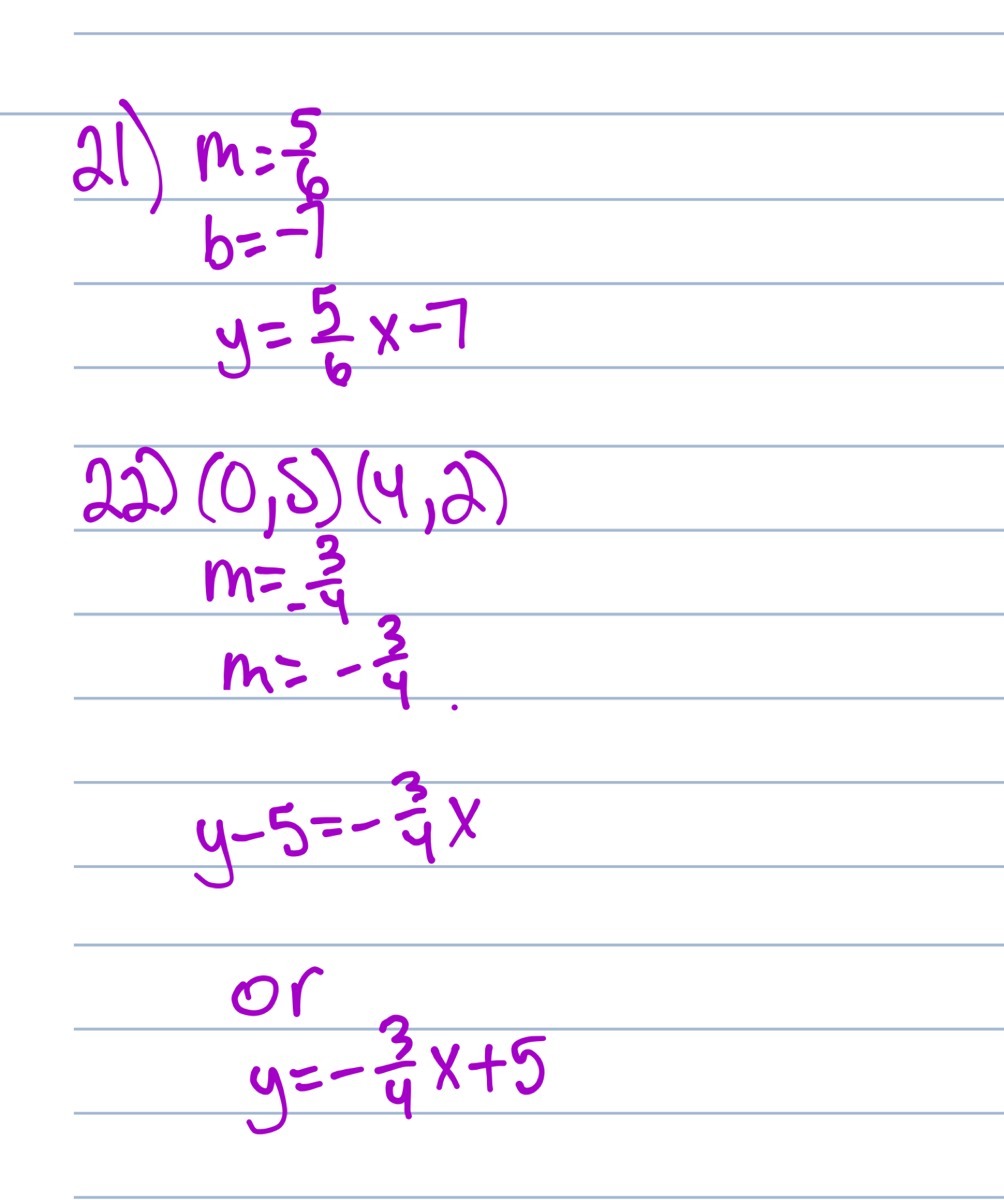 21) m=5/6
b=-7
y=5/6 x-7
22) (0,5) (4,2)
m=3/-4
m=-3/4.
y-5=-3/4 x
or
y=-3/4 x+5